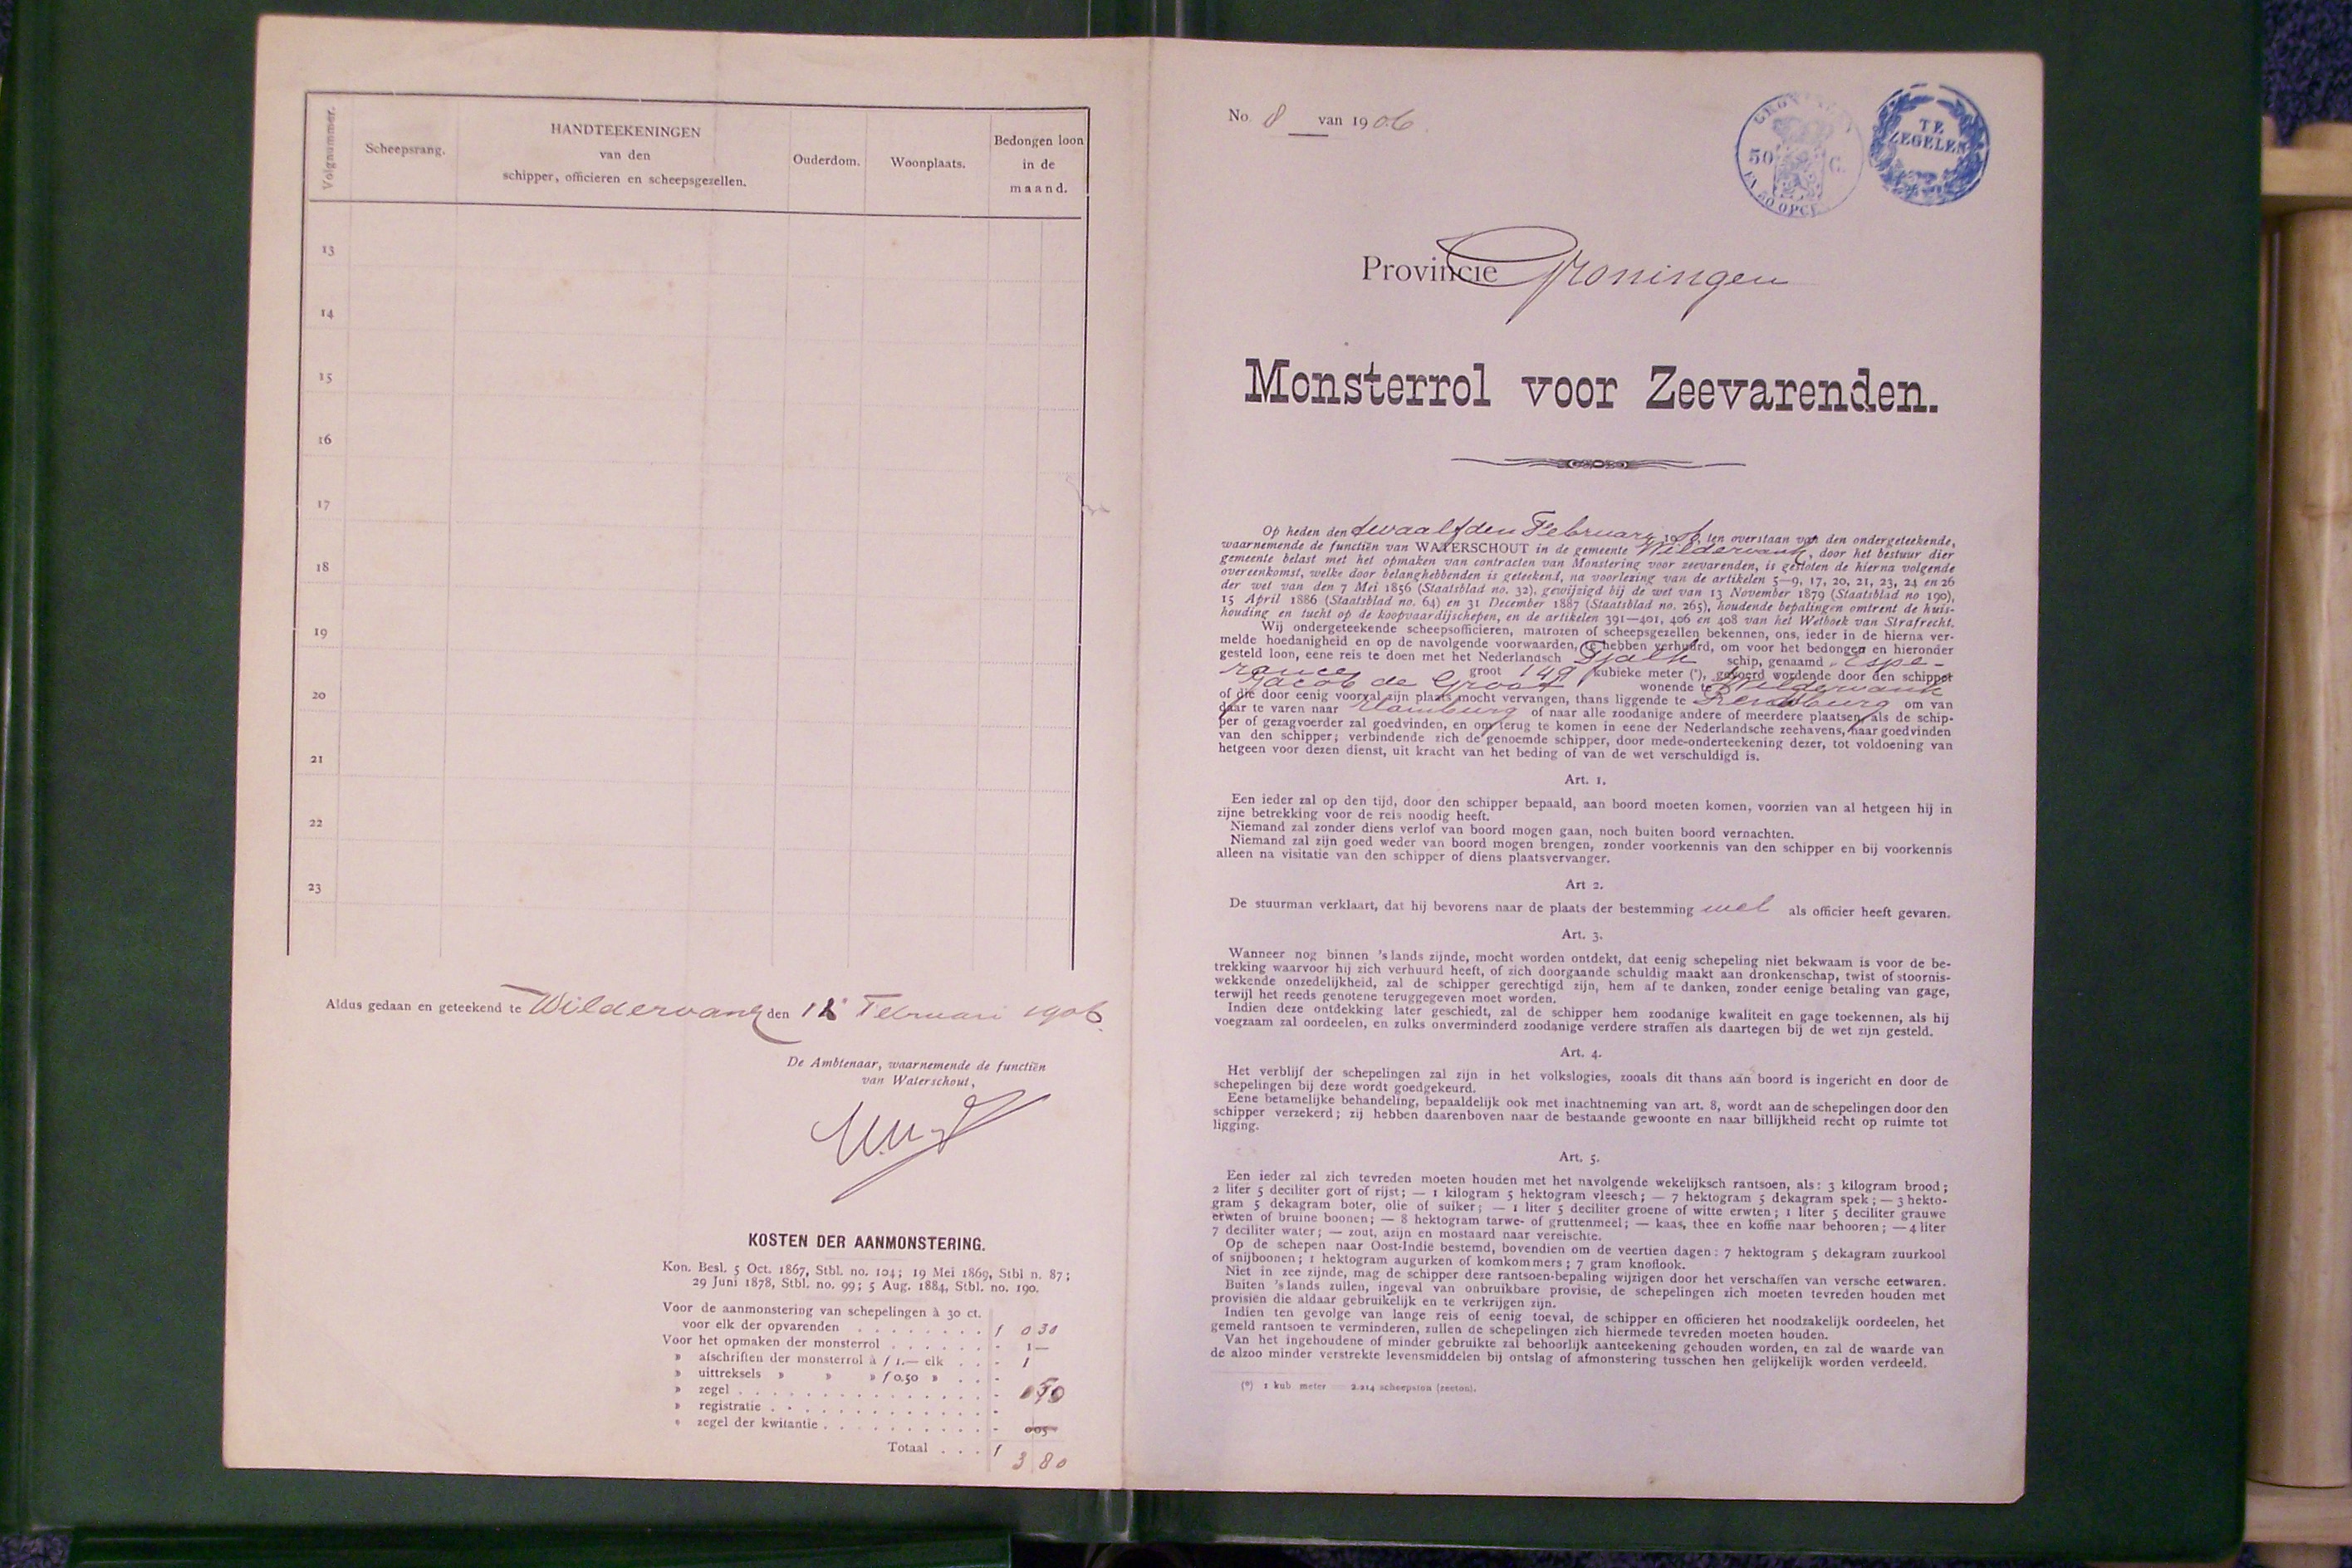 Volgnummer.
Scheepsrang.
HANDTEEKENINGEN
van den
schipper, officieren en scheepsgezellen.
Ouderdom.
Woonplaats.
Bedongen loon
in de
maand.
13
14
15
16
17
18
19
20
21
22
23
Aldus gedaan en geteekend te Wildervank den 12 Februari 1906.
De Ambtenaar, waarnemende de functiën
van Waterschout,
KOSTEN DER AANMONSTERING.
Kon. Besl. 5 Oct. 1867, Stbl. no. 104; 19 Mei 1869, Stbl n. 87;
29 Juni 1878, Stbl. no. 99; 5 Aug. 1884, Stbl. no. 190.
Voor de aanmonstering van schepelingen à 30 ct.
voor elk der opvarenden . . . . . . . . f 0 30
Voor het opmaken der monsterrol . . . . . . - 1 —
» afschriften der monsterrol à f 1.— elk . . - 1
» uittreksels » » » f 0.50 » . . -
» zegel . . . . . . . . . . . . . . . -
» registratie . . . . . . . . . . . . . -
» zegel der kwitantie . . . . . . . . . . - 005
Totaal . . . f 3 80
No. 8 van 1906.
GRONINGEN
50 C.
EN 50 OPC
TE
ZEGELEN
Provincie Groningen
Monsterrol voor Zeevarenden.
Op heden den twaalfden Februari 1906, ten overstaan van den ondergeteekende,
waarnemende de functiën van WATERSCHOUT in de gemeente Wildervank, door het bestuur dier
gemeente belast met het opmaken van contracten van Monstering voor zeevarenden, is gesloten de hierna volgende
overeenkomst, welke door belanghebbenden is geteekend, na voorlezing van de artikelen 5—9, 17, 20, 21, 23, 24 en 26
der wet van den 7 Mei 1856 (Staatsblad no. 32), gewijzigd bij de wet van 13 November 1879 (Staatsblad no 190),
15 April 1886 (Staatsblad no. 64) en 31 December 1887 (Staatsblad no. 265), houdende bepalingen omtrent de huis-
houding en tucht op de koopvaardijschepen, en de artikelen 391—401, 406 en 408 van het Wetboek van Strafrecht.
Wij ondergeteekende scheepsofficieren, matrozen of scheepsgezellen bekennen, ons, ieder in de hierna ver-
melde hoedanigheid en op de navolgende voorwaarden, te hebben verhuurd, om voor het bedongen en hieronder
gesteld loon, eene reis te doen met het Nederlandsch Tjalk schip, genaamd „Espe-
rance" groot 149 kubieke meter (*), gevoerd wordende door den schipper
Jacob de Groot wonende te Wildervank
of die door eenig voorval zijn plaats mocht vervangen, thans liggende te Rendsburg om van
daar te varen naar Hamburg of naar alle zoodanige andere of meerdere plaatsen, als de schip-
per of gezagvoerder zal goedvinden, en om terug te komen in eene der Nederlandsche zeehavens, naar goedvinden
van den schipper; verbindende zich de genoemde schipper, door mede-onderteekening dezer, tot voldoening van
hetgeen voor dezen dienst, uit kracht van het beding of van de wet verschuldigd is.
Art. 1.
Een ieder zal op den tijd, door den schipper bepaald, aan boord moeten komen, voorzien van al hetgeen hij in
zijne betrekking voor de reis noodig heeft.
Niemand zal zonder diens verlof van boord mogen gaan, noch buiten boord vernachten.
Niemand zal zijn goed weder van boord mogen brengen, zonder voorkennis van den schipper en bij voorkennis
alleen na visitatie van den schipper of diens plaatsvervanger.
Art 2.
De stuurman verklaart, dat hij bevorens naar de plaats der bestemming wel als officier heeft gevaren.
Art. 3.
Wanneer nog binnen 's lands zijnde, mocht worden ontdekt, dat eenig schepeling niet bekwaam is voor de be-
trekking waarvoor hij zich verhuurd heeft, of zich doorgaande schuldig maakt aan dronkenschap, twist of stoornis-
wekkende onzedelijkheid, zal de schipper gerechtigd zijn, hem af te danken, zonder eenige betaling van gage,
terwijl het reeds genotene teruggegeven moet worden.
Indien deze ontdekking later geschiedt, zal de schipper hem zoodanige kwaliteit en gage toekennen, als hij
voegzaam zal oordeelen, en zulks onverminderd zoodanige verdere straffen als daartegen bij de wet zijn gesteld.
Art. 4.
Het verblijf der schepelingen zal zijn in het volkslogies, zooals dit thans aan boord is ingericht en door de
schepelingen bij deze wordt goedgekeurd.
Eene betamelijke behandeling, bepaaldelijk ook met inachtneming van art. 8, wordt aan de schepelingen door den
schipper verzekerd; zij hebben daarenboven naar de bestaande gewoonte en naar billijkheid recht op ruimte tot
ligging.
Art. 5.
Een ieder zal zich tevreden moeten houden met het navolgende wekelijksch rantsoen, als: 3 kilogram brood;
2 liter 5 deciliter gort of rijst; — 1 kilogram 5 hektogram vleesch; — 7 hektogram 5 dekagram spek; — 3 hekto-
gram 5 dekagram boter, olie of suiker; — 1 liter 5 deciliter groene of witte erwten; 1 liter 5 deciliter grauwe
erwten of bruine boonen; — 8 hektogram tarwe- of gruttenmeel; — kaas, thee en koffie naar behooren; — 4 liter
7 deciliter water; — zout, azijn en mostaard naar vereischte.
Op de schepen naar Oost-Indië bestemd, bovendien om de veertien dagen: 7 hektogram 5 dekagram zuurkool
of snijboonen; 1 hektogram augurken of komkommers; 7 gram knoflook.
Niet in zee zijnde, mag de schipper deze rantsoen-bepaling wijzigen door het verschaffen van versche eetwaren.
Buiten 's lands zullen, ingeval van onbruikbare provisie, de schepelingen zich moeten tevreden houden met
provisiën die aldaar gebruikelijk en te verkrijgen zijn.
Indien ten gevolge van lange reis of eenig toeval, de schipper en officieren het noodzakelijk oordeelen, het
gemeld rantsoen te verminderen, zullen de schepelingen zich hiermede tevreden moeten houden.
Van het ingehoudene of minder gebruikte zal behoorlijk aanteekening gehouden worden, en zal de waarde van
de alzoo minder verstrekte levensmiddelen bij ontslag of afmonstering tusschen hen gelijkelijk worden verdeeld.
(*) 1 kub meter 2.214 scheepston (zeeton).